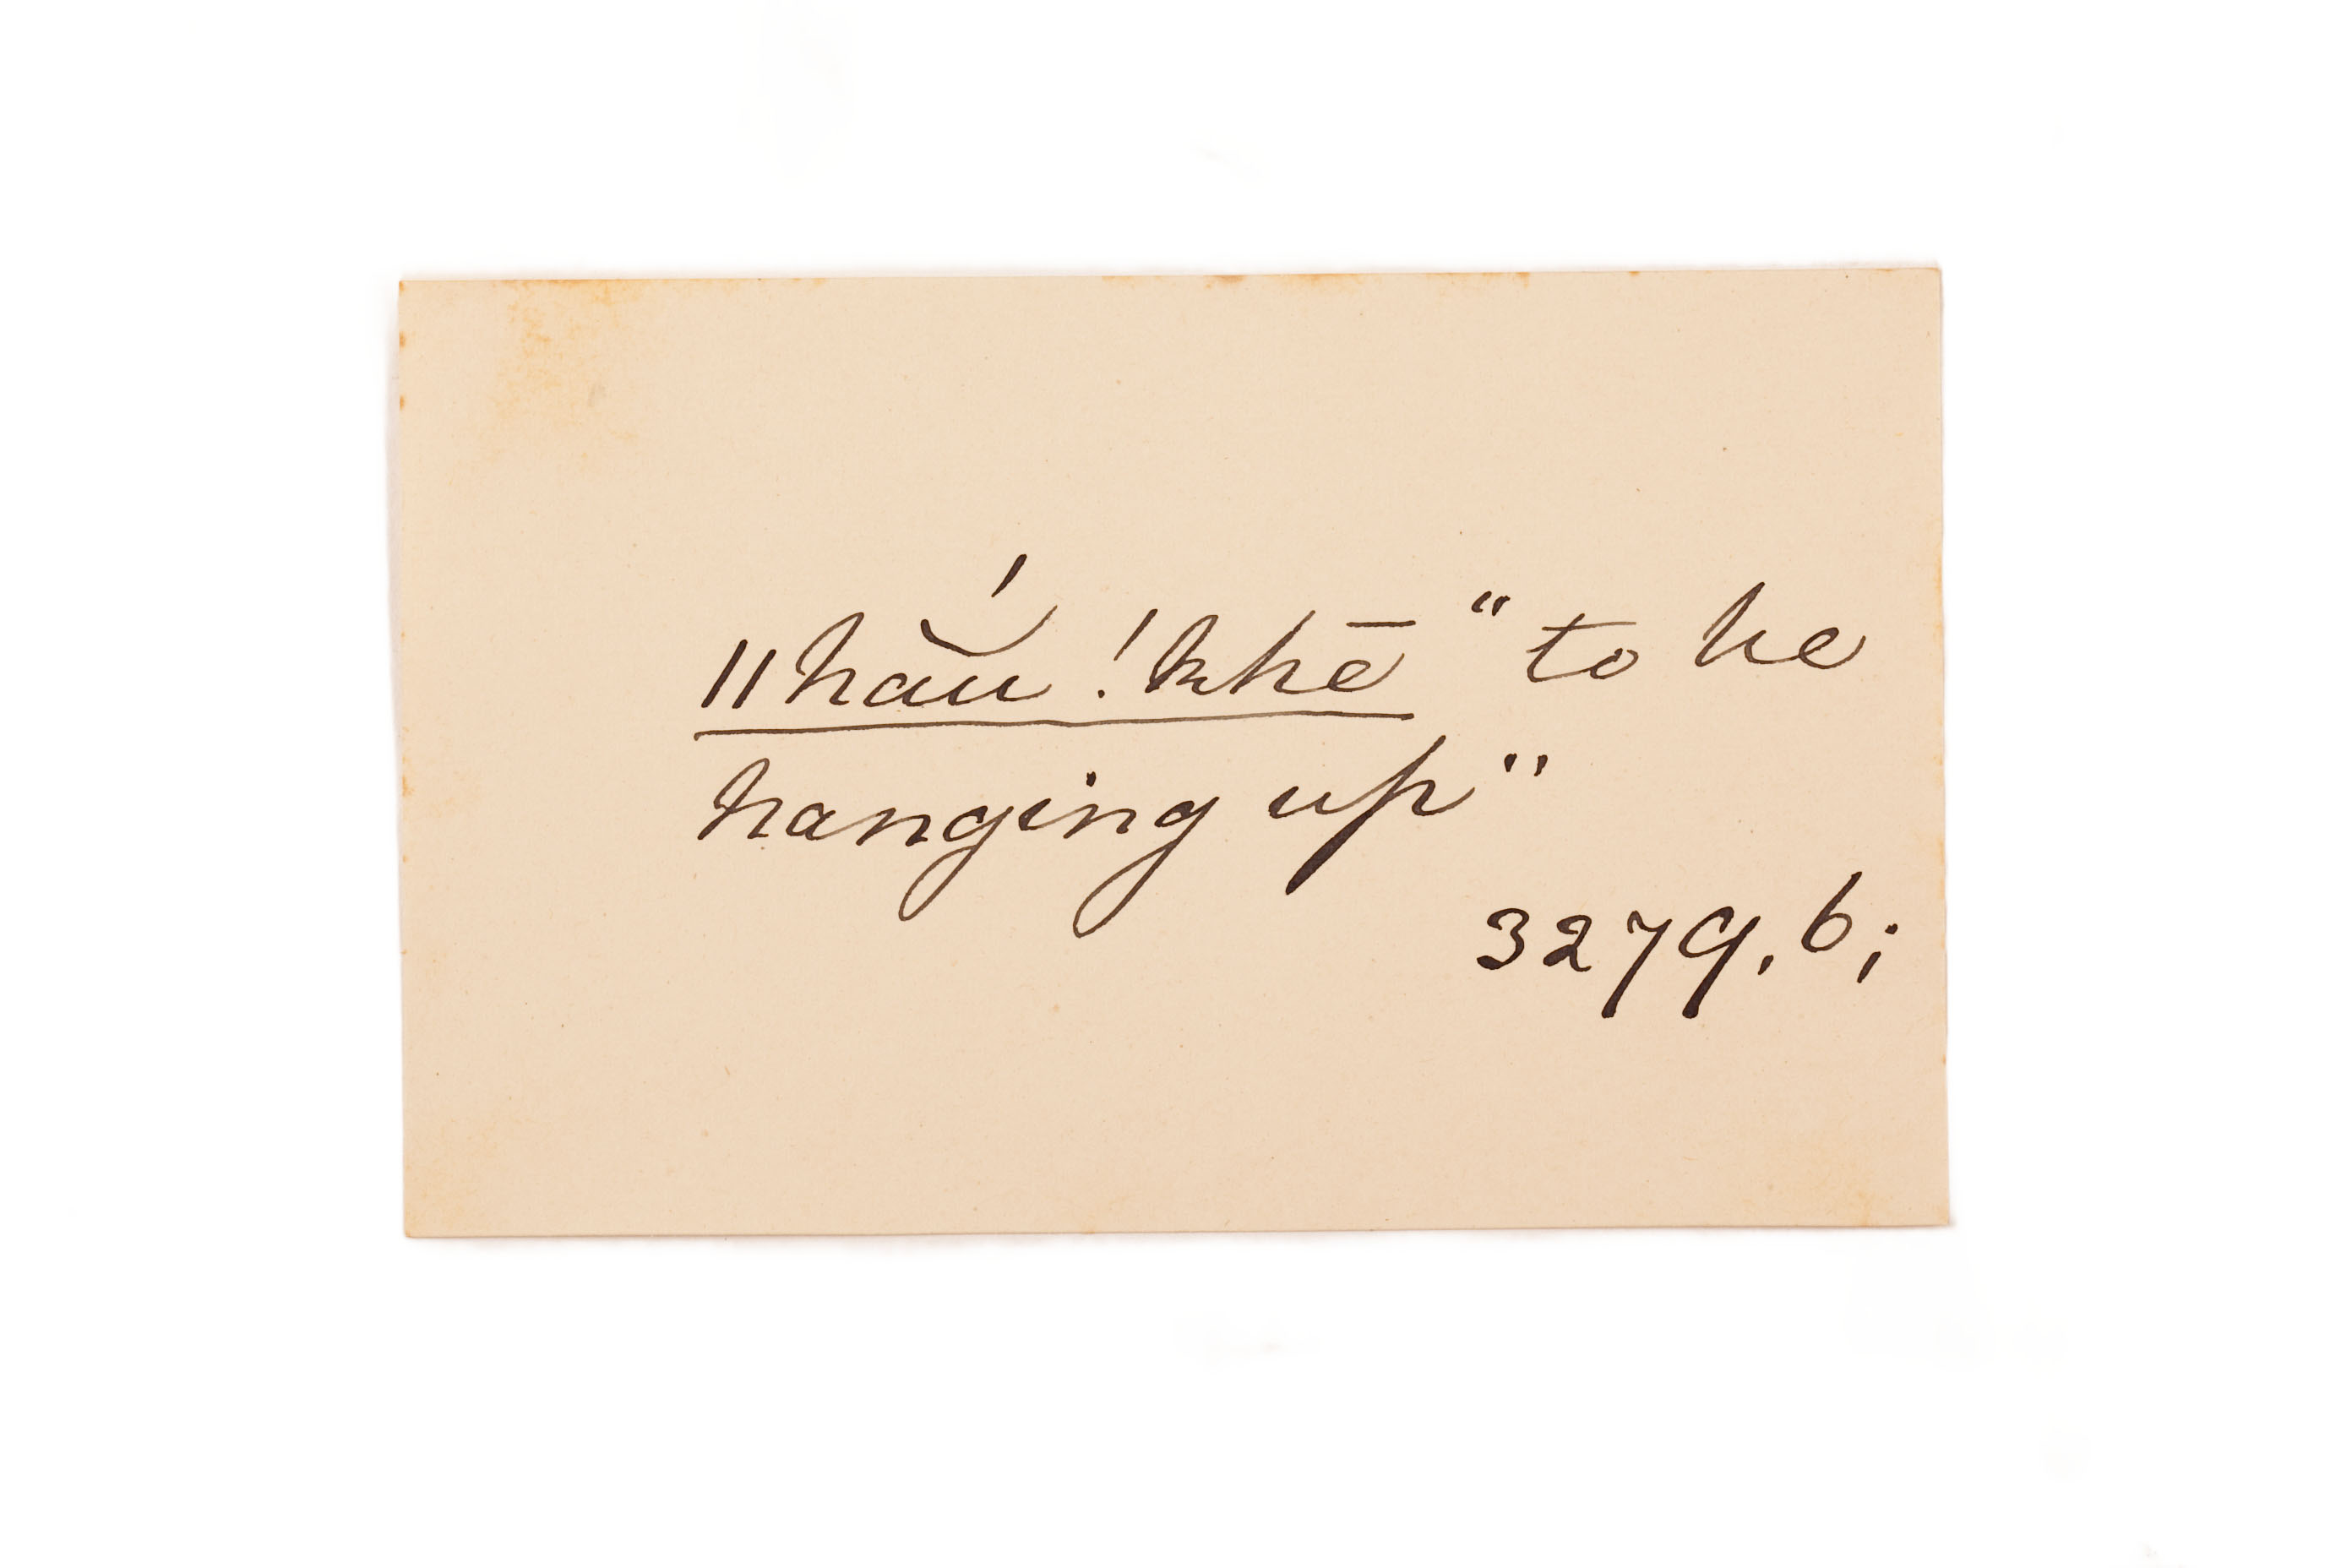 ǁhău̒́ !khē “to be
hanging up”
3279, b;